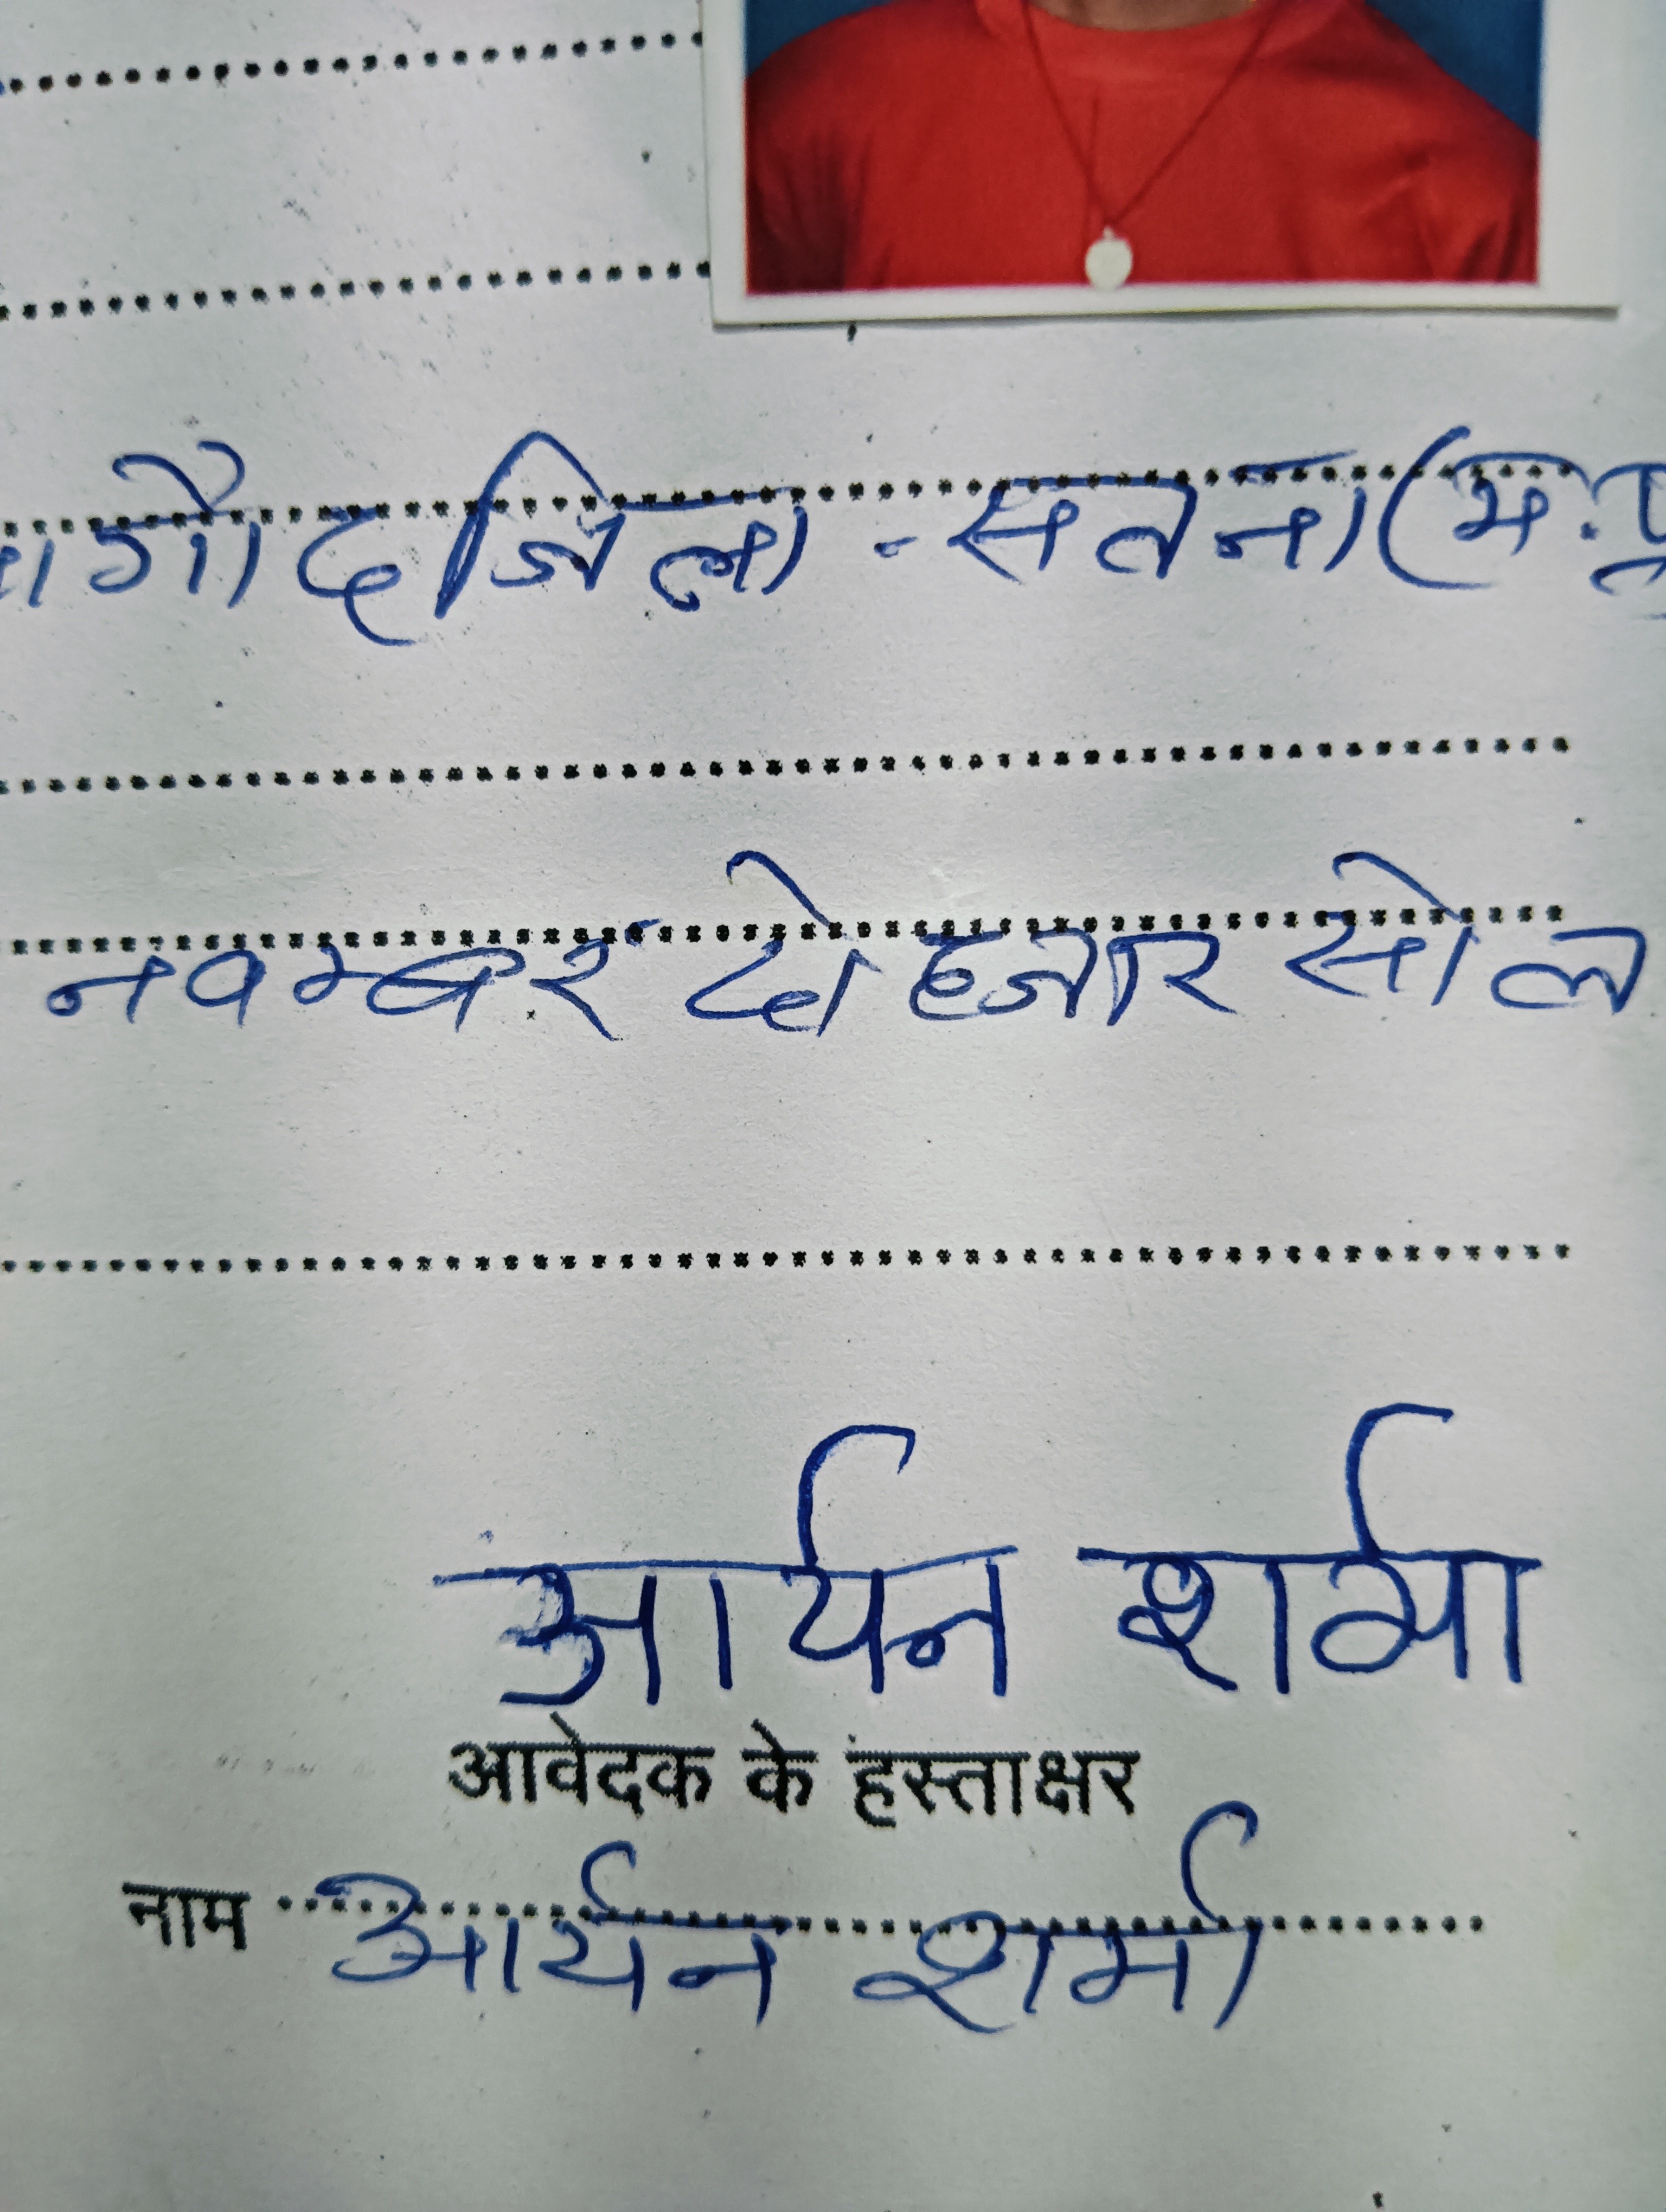 ागौद जिला - सतना (म.प्र
नवम्बर दो हजार सोल
आर्यन शर्मा
आवेदक के हस्ताक्षर
नाम आर्यन शर्मा